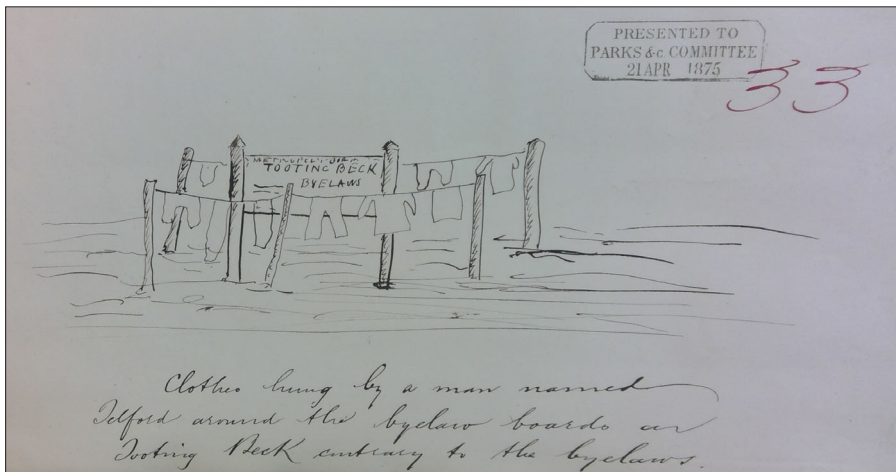 PRESENTED TO
PARKS &c. COMMITTEE
21 APR 1875
33
TOOTING BECK
BYELAWS
Clothes hung by a man named
Telford around the byelaw boards on
Tooting Beck contrary to the byelaws.